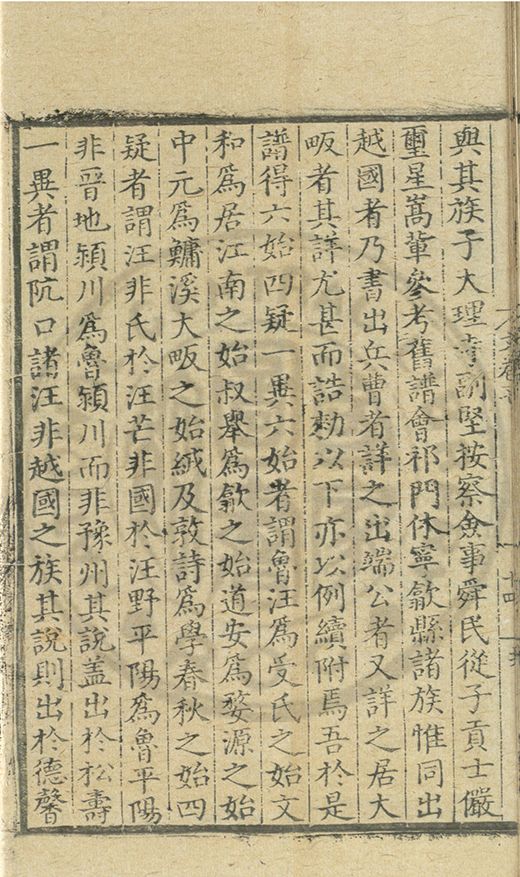 與其族子大理寺副堅按察僉事舜民從子貢士儼
璽星嵩輩參考舊譜會祁門休寧歙縣諸族惟同出
越國者乃書出兵曹者詳之出端公者又詳之居大
畈者其詳尤甚而誥勅以下亦以例續附焉吾於是
譜得六始四疑一異六始者謂魯汪為受氏之始文
和為居江南之始叔舉為歙之始道安為婺源之始
中元為鱅溪大畈之始絨及敦詩為學春秋之始四
疑者謂汪非氏於汪芒非國於汪野平陽為魯平陽
非晉地潁川為魯潁川而非豫州其說盖出於松壽
一異者謂阬口諸汪非越國之族其說則出於德馨